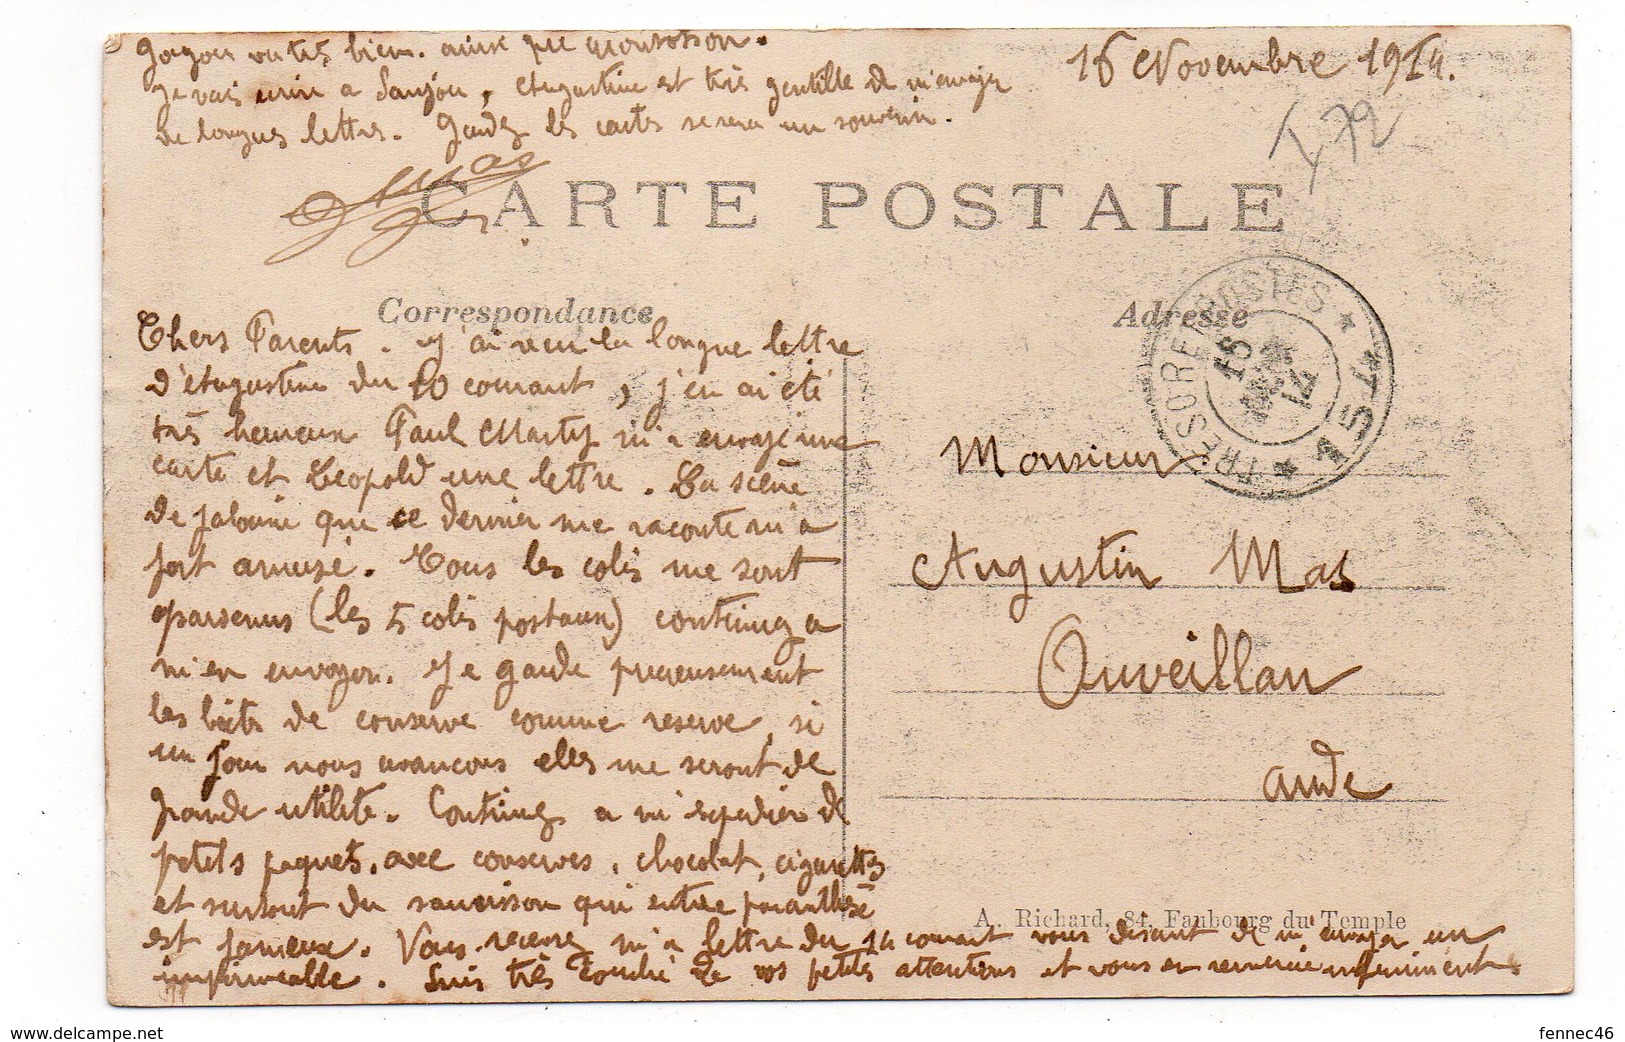 bien. ainsi que
16 Novembre 1914.
Je vais à , Augustine est très gentille de m'envoyer
de longues lettres. Gardez les cartes se sera un souvenir.
I 72
Mas
CARTE POSTALE
Correspondance
Chers Parents. J'ai recu la longue lettre
d'Augustine du 10 courant, j'en ai été
très heureux Paul Marty m'a envoyé une
carte et Leopold une lettre. La scène
de jalousie que ce dernier me raconte m'a
fort amusé. Tous les colis me sont
parvenus (les 5 colis postaux) continuez a
m'en envoyer. Je garde precieusement
les boites de conserve comme reserve, si
un jour nous avancons elles me seront de
grande utilite. Continuez a m'expedier de
petits paquets, avec conserves, chocolat, cigarettes
et surtout du saucisson qui entre paranthèse
est fameux. Vous recevrez ma lettre du 14 courant vous disant de m'envoyer un
impermeable. Suis très touché de vos petites attentions et vous en remercie infiniment
Adresse
TRESOR ET POSTES
16
14
* 157 *
Monsieur
Augustin Mas
Ouveillan
Aude
A. Richard, 84, Faubourg du Temple
www.delcampe.net
fennec46